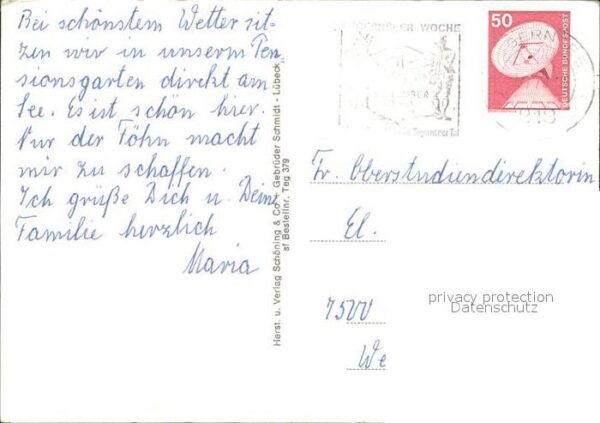 Bei schönstem Wetter sit-
zen wir in unserm Pen-
sionsgarten direkt am
See. Es ist schön hier.
Nur der Föhn macht
mir zu schaffen.
Ich grüße Dich u. Deine
Familie herzlich
Maria
Herst. u. Verlag Schöning & Co · Gebrüder Schmidt - Lübeck
Bestellnr. Teg 379
WOCHE
Tegernseer Tal
50
DEUTSCHE BUNDESPOST
Fr. Oberstudiendirektorin
El.
7500
We
privacy protection
Datenschutz